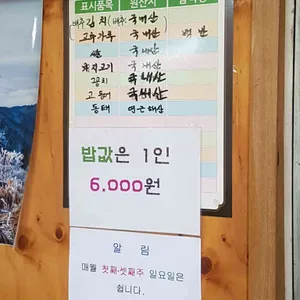 표시품목 원산지
배추김치(배추:국내산)
고추가루 국내산 백반
쌀 국내산
돼지고기 국내산
꽁치 국내산
고등어 국내산
동태
밥값은 1인
6.000원
알 림
매월 첫째·셋째주 일요일은
쉽니다.